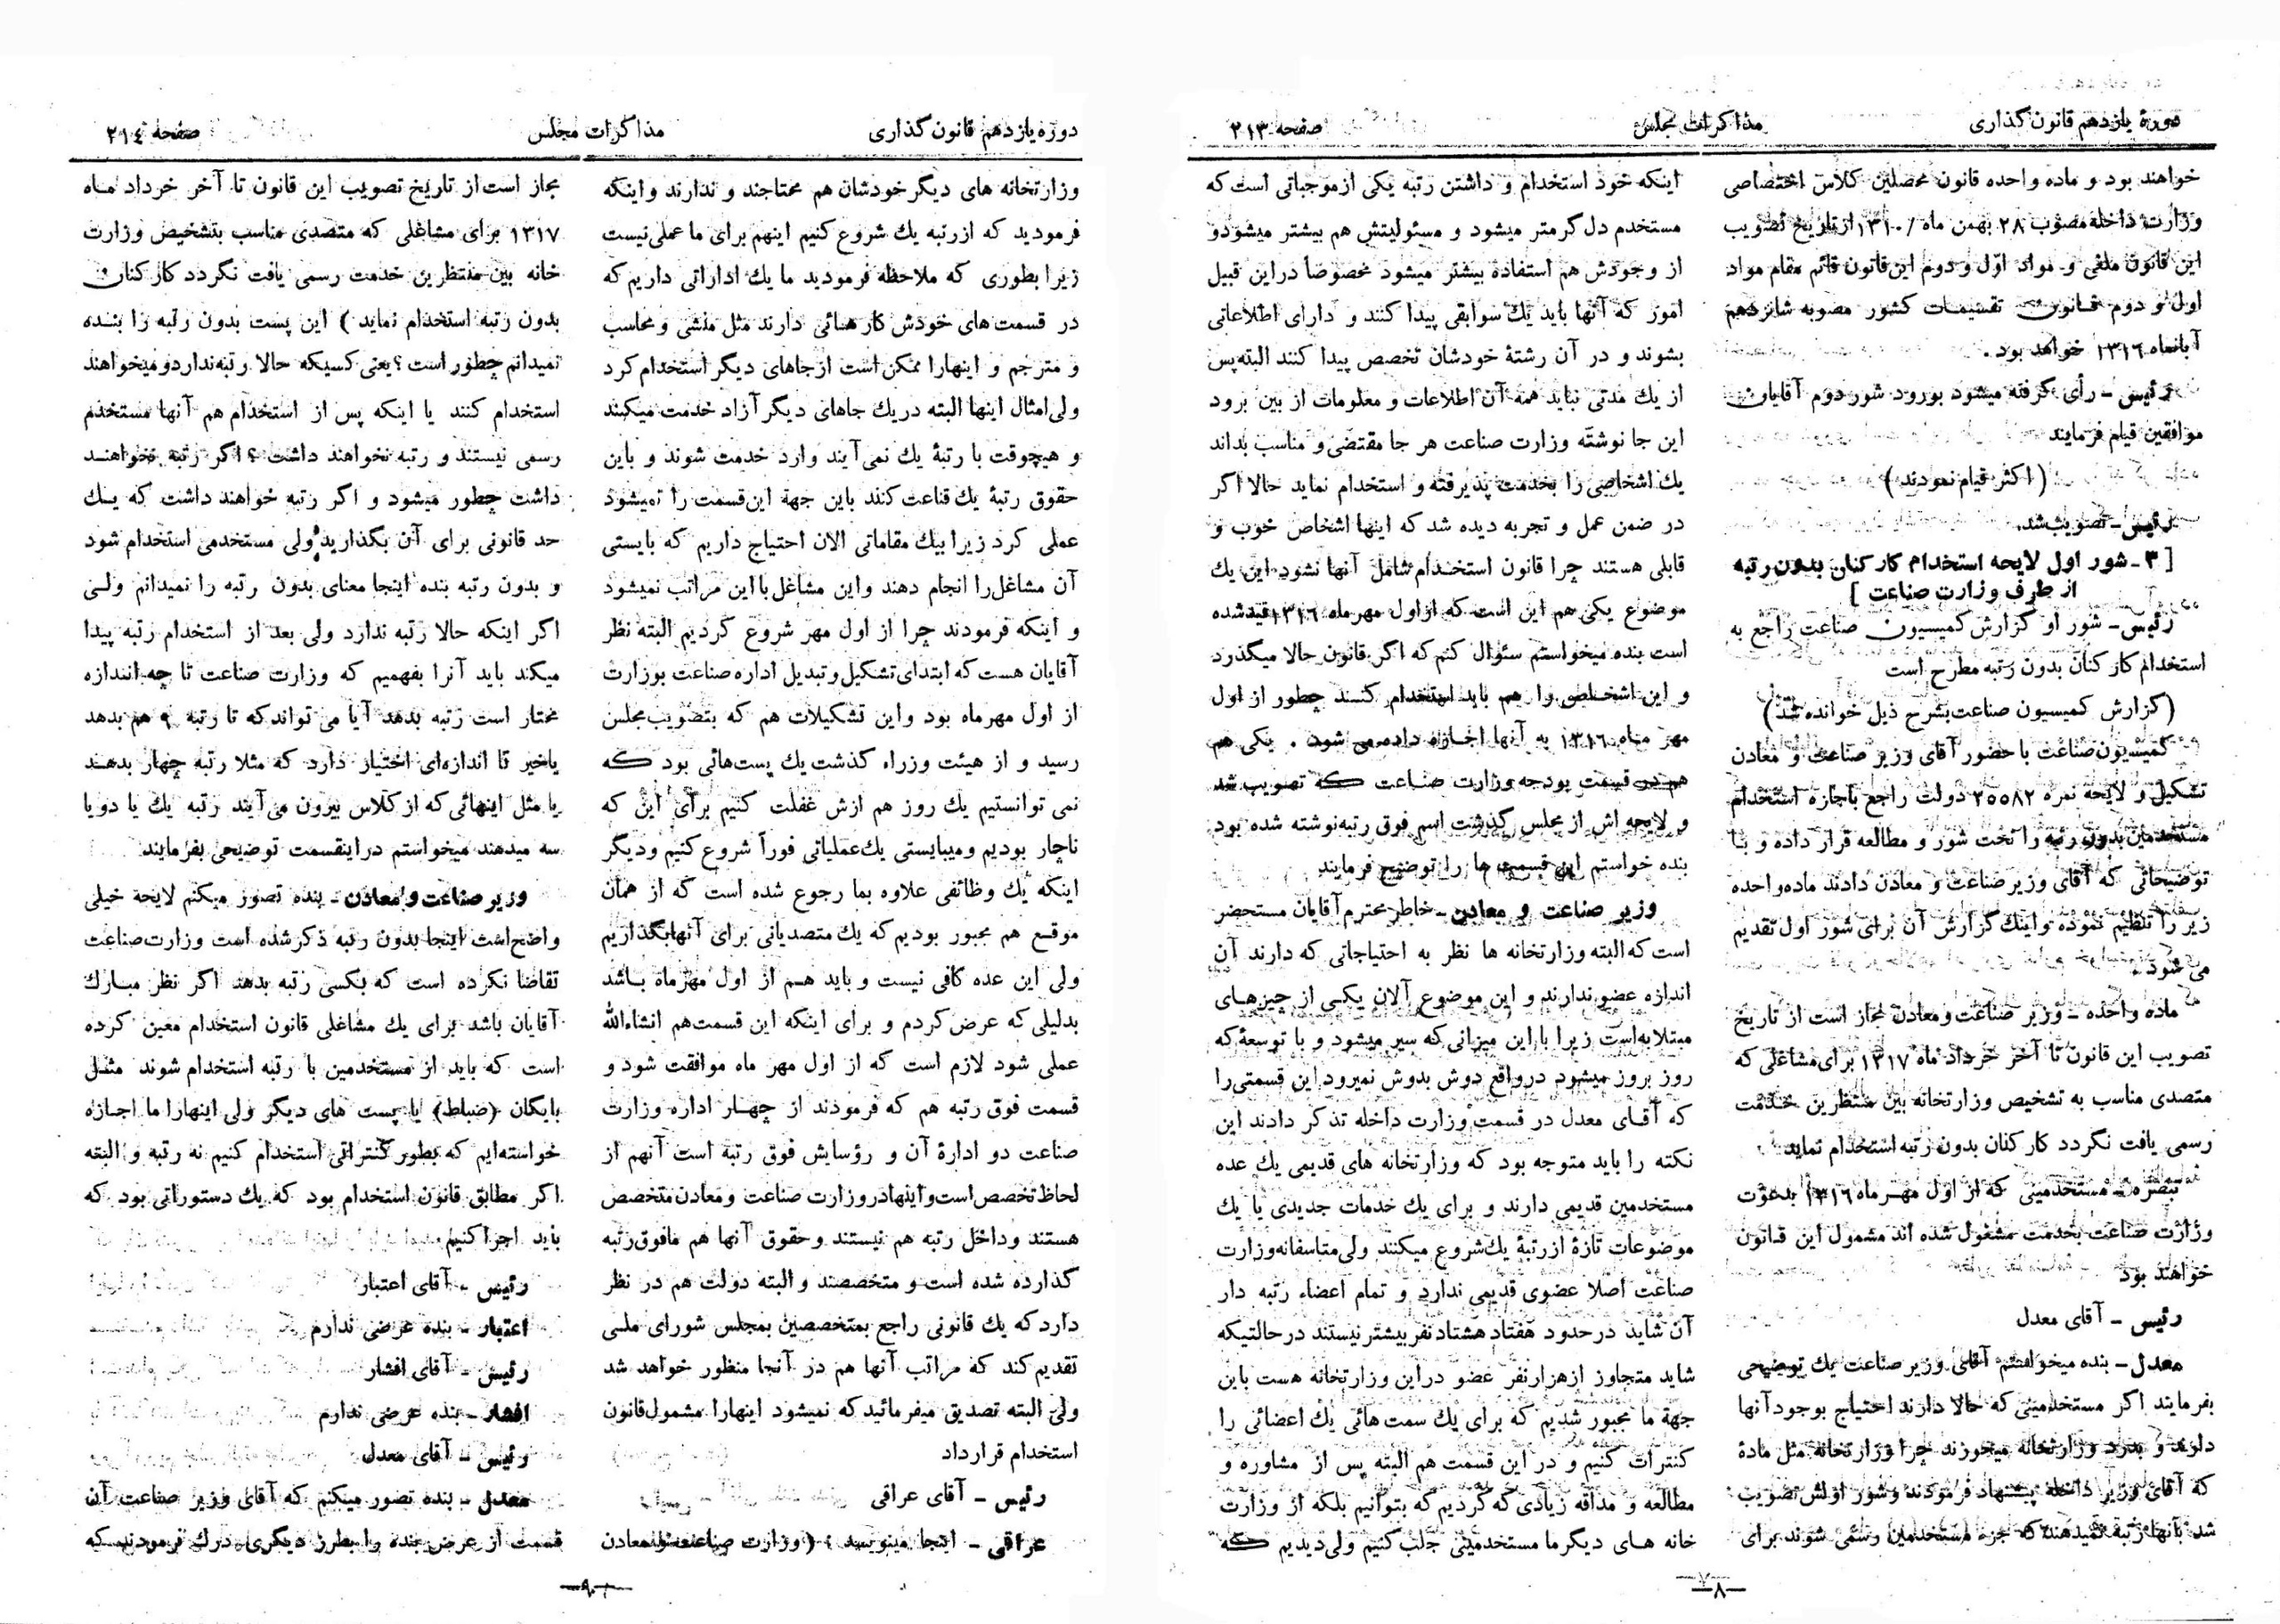 دورهٔ یازدهم قانون گذاری
مذاکرات مجلس
صفحه ۲۱۳
خواهند بود و ماده واحده قانون محصلین کلاس اختصاصی
وزارت داخله مصوب ۲۸ بهمن ماه ۱۳۱۰ از تاریخ تصویب
این قانون ملغی و مواد اول و دوم این قانون قائم مقام مواد
اول و دوم قانون تقسیمات کشور مصوبه شانزدهم
آبانماه ۱۳۱٦ خواهد بود.
رئیس ـ رأی گرفته میشود بورود شور دوم آقایان
موافقین قیام فرمایند
(اکثر قیام نمودند)
رئیس ـ تصویب شد.
[ ۳ ـ شور اول لایحه استخدام کارکنان بدون رتبه
از طرف وزارت صناعت ]
رئیس ـ شور او گزارش کمیسیون صناعت راجع به
استخدام کارکنان بدون رتبه مطرح است
(گزارش کمیسیون صناعت بشرح ذیل خوانده شد)
کمیسیون صناعت با حضور آقای وزیر صناعت و معادن
تشکیل و لایحه نمره ۲٥٥۸۲ دولت راجع باجازه استخدام
مستخدمین بدون رتبه را تحت شور و مطالعه قرار داده و با
توضیحاتی که آقای وزیر صناعت و معادن دادند ماده واحده
زیر را تنظیم نموده و اینك گزارش آن برای شور اول تقدیم
می شود.
ماده واحده ـ وزیر صناعت و معادن مجاز است از تاریخ
تصویب این قانون تا آخر خرداد ماه ۱۳۱۷ برای مشاغلی که
متصدی مناسب به تشخیص وزارتخانه بین منتظرین خدمت
رسمی یافت نگردد کارکنان بدون رتبه استخدام نماید.
تبصره ـ مستخدمینی که از اول مهر ماه ۱۳۱٦ بدعوت
وزارت صناعت بخدمت مشغول شده اند مشمول این قانون
خواهند بود
رئیس ـ آقای معدل
معدل ـ بنده میخواستم آقای وزیر صناعت یك توضیحی
بفرمایند اگر مستخدمینی که حالا دارند احتیاج بوجود آنها
دارند و بدرد وزارتخانه میخورند چرا وزارتخانه مثل مادهٔ
که آقای وزیر داخله پیشنهاد فرمودند و شور اولش تصویب
شد بآنها رتبه نمیدهند که جزء مستخدمین رسمی شوند برای
اینکه خود استخدام و داشتن رتبه یکی از موجباتی است که
مستخدم دل گرمتر میشود و مسئولیتش هم بیشتر میشود و
از وجودش هم استفاده بیشتر میشود مخصوصاً در این قبیل
امور که آنها باید یك سوابقی پیدا کنند و دارای اطلاعاتی
بشوند و در آن رشتهٔ خودشان تخصص پیدا کنند البته پس
از یك مدتی نباید همهٔ آن اطلاعات و معلومات از بین برود
این جا نوشته وزارت صناعت هر جا مقتضی و مناسب بداند
یك اشخاصی را بخدمت پذیرفته و استخدام نماید حالا اگر
در ضمن عمل و تجربه دیده شد که اینها اشخاص خوب و
قابلی هستند چرا قانون استخدام شامل آنها نشود این یك
موضوع یکی هم این است که از اول مهرماه ۱۳۱٦ قید شده
است بنده میخواستم سئوال کنم که اگر قانون حالا میگذرد
و این اشخاص را هم باید استخدام کنند چطور از اول
مهر ماه ۱۳۱٦ به آنها اجازه داده می شود. یکی هم
هم در قسمت بودجه وزارت صناعت که تصویب شد
و لایحه اش از مجلس گذشت اسم فوق رتبه نوشته شده بود
بنده خواستم این قسمت ها را توضیح فرمایند
وزیر صناعت و معادن ـ خاطر محترم آقایان مستحضر
است که البته وزارتخانه ها نظر به احتیاجاتی که دارند آن
اندازه عضو ندارند و این موضوع الان یکی از چیزهای
مبتلابه است زیرا با این میزانی که سیر میشود و با توسعهٔ که
روز بروز میشود در واقع دوش بدوش نمیرود این قسمتی را
که آقای معدل در قسمت وزارت داخله تذکر دادند این
نکته را باید متوجه بود که وزارتخانه های قدیمی یك عده
مستخدمین قدیمی دارند و برای یك خدمات جدیدی یا یك
موضوعات تازهٔ از رتبهٔ یك شروع میکنند ولی متاسفانه وزارت
صناعت اصلا عضوی قدیمی ندارد و تمام اعضاء رتبه دار
آن شاید در حدود هفتاد هشتاد نفر بیشتر نیستند در حالتیکه
شاید متجاوز از هزار نفر عضو در این وزارتخانه هست باین
جهة ما مجبور شدیم که برای یك سمت هائی یك اعضائی را
کنترات کنیم و در این قسمت هم البته پس از مشاوره و
مطالعه و مداقه زیادی که کردیم که بتوانیم بلکه از وزارت
خانه های دیگر ما مستخدمینی جلب کنیم ولی دیدیم که
ـ۸ـ
دوره یازدهم قانون گذاری
مذاکرات مجلس
صفحه ۲۱٤
وزارتخانه های دیگر خودشان هم محتاجند و ندارند و اینکه
فرمودید که از رتبه یك شروع کنیم اینهم برای ما عملی نیست
زیرا بطوری که ملاحظه فرمودید ما یك اداراتی داریم که
در قسمت های خودش کارهائی دارند مثل منشی و محاسب
و مترجم و اینها را ممکن است از جاهای دیگر استخدام کرد
ولی امثال اینها البته در یك جاهای دیگر آزاد خدمت میکنند
و هیچوقت با رتبهٔ یك نمی آیند وارد خدمت شوند و باین
حقوق رتبهٔ یك قناعت کنند باین جهة این قسمت را نمیشود
عملی کرد زیرا بیك مقاماتی الان احتیاج داریم که بایستی
آن مشاغل را انجام دهند و این مشاغل با این مراتب نمیشود
و اینکه فرمودند چرا از اول مهر شروع کردیم البته نظر
آقایان هست که ابتدای تشکیل و تبدیل اداره صناعت بوزارت
از اول مهرماه بود و این تشکیلات هم که بتصویب مجلس
رسید و از هیئت وزراء گذشت یك پست هائی بود که
نمی توانستیم یك روز هم ازش غفلت کنیم برای این که
ناچار بودیم و میبایستی یك عملیاتی فوراً شروع کنیم و دیگر
اینکه یك وظائفی علاوه بما رجوع شده است که از همان
موقع هم مجبور بودیم که یك متصدیانی برای آنها بگذاریم
ولی این عده کافی نیست و باید هم از اول مهرماه باشد
بدلیلی که عرض کردم و برای اینکه این قسمت هم انشاءالله
عملی شود لازم است که از اول مهر ماه موافقت شود و
قسمت فوق رتبه هم که فرمودند از چهار اداره وزارت
صناعت دو ادارهٔ آن و رؤسایش فوق رتبه است آنهم از
لحاظ تخصص است و اینها در وزارت صناعت و معادن متخصص
هستند و داخل رتبه هم نیستند و حقوق آنها هم مافوق رتبه
گذارده شده است و متخصصند و البته دولت هم در نظر
دارد که یك قانونی راجع بمتخصصین بمجلس شورای ملی
تقدیم کند که مراتب آنها هم در آنجا منظور خواهد شد
ولی البته تصدیق میفرمائید که نمیشود اینها را مشمول قانون
استخدام قرار داد
رئیس ـ آقای عراقی
عراقی ـ اینجا مینویسد: (وزارت صناعت و معادن
مجاز است از تاریخ تصویب این قانون تا آخر خرداد ماه
۱۳۱۷ برای مشاغلی که متصدی مناسب بتشخیص وزارت
خانه بین منتظرین خدمت رسمی یافت نگردد کارکنان
بدون رتبه استخدام نماید) این پست بدون رتبه را بنده
نمیدانم چطور است؟ یعنی کسیکه حالا رتبه ندارد و میخواهند
استخدام کنند یا اینکه پس از استخدام هم آنها مستخدم
رسمی نیستند و رتبه نخواهند داشت؟ اگر رتبه نخواهند
داشت چطور میشود و اگر رتبه خواهند داشت که یك
حد قانونی برای آن بگذارید ولی مستخدمی استخدام شود
و بدون رتبه بنده اینجا معنای بدون رتبه را نمیدانم ولی
اگر اینکه حالا رتبه ندارد ولی بعد از استخدام رتبه پیدا
میکند باید آنرا بفهمیم که وزارت صناعت تا چه اندازه
مختار است رتبه بدهد آیا می تواند که تا رتبه ۹ هم بدهد
یا خیر تا اندازه ای اختیار دارد که مثلا رتبه چهار بدهند
یا مثل اینهائی که از کلاس بیرون می آیند رتبه یك یا دو یا
سه میدهند میخواستم در اینقسمت توضیحی بفرمایند.
وزیر صناعت و معادن ـ بنده تصور میکنم لایحهٔ خیلی
واضح است اینجا بدون رتبه ذکر شده است وزارت صناعت
تقاضا نکرده است که بکسی رتبه بدهد اگر نظر مبارك
آقایان باشد برای یك مشاغلی قانون استخدام معین کرده
است که باید از مستخدمین با رتبه استخدام شوند مثل
بایگان (ضباط) یا پست های دیگر ولی اینها را ما اجازه
خواسته‌ایم که بطور کنتراتی استخدام کنیم نه رتبه و البته
اگر مطابق قانون استخدام بود که یك دستوراتی بود که
باید اجرا کنیم.
رئیس ـ آقای اعتبار
اعتبار ـ بنده عرضی ندارم
رئیس ـ آقای افشار
افشار ـ بنده عرضی ندارم
رئیس ـ آقای معدل
معدل ـ بنده تصور میکنم که آقای وزیر صناعت آن
قسمت از عرض بنده را بطرز دیگری درك فرمودند که
ـ۹ـ